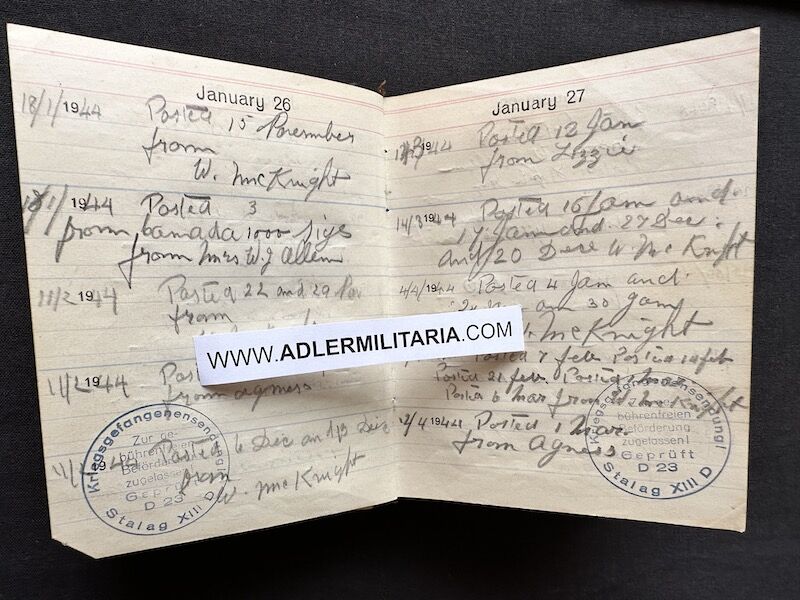 January 26
18/1/1944 Posted 15 November
from
W. McKnight
1944 Posted 3
from Canada 1000 sigs
from Mrs W. J Allen
11/2 1944 Posted 22 and 29
from
11/2 1944
from Agness
1944 Posted 6 Dec and 13 Dec
from
W. McKnight
Kriegsgefangenensendung!
Zur ge-
bührenfreien
Beförderung
zugelassen!
Geprüft
D 23
Stalag XIII D
WWW.ADLERMILITARIA.COM
January 27
1944 Posted 12 Jan
from Lizzie
14/3 1944 Posted 16 Jam and
17 Jam and 27 Dec.
and 20 Dece W McKnight
4/4/1944 Posted 4 Jam and
30
McKnight
Posted 7 feb Posted 14 feb
Posted 21 feb. Posted
Posted 6 Mar from W. McKnight
12/4 1944 Posted 1 Mar.
from Agness
Kriegsgefangenensendung!
bührenfreien
Beförderung
zugelassen!
Geprüft
D 23
Stalag XIII D